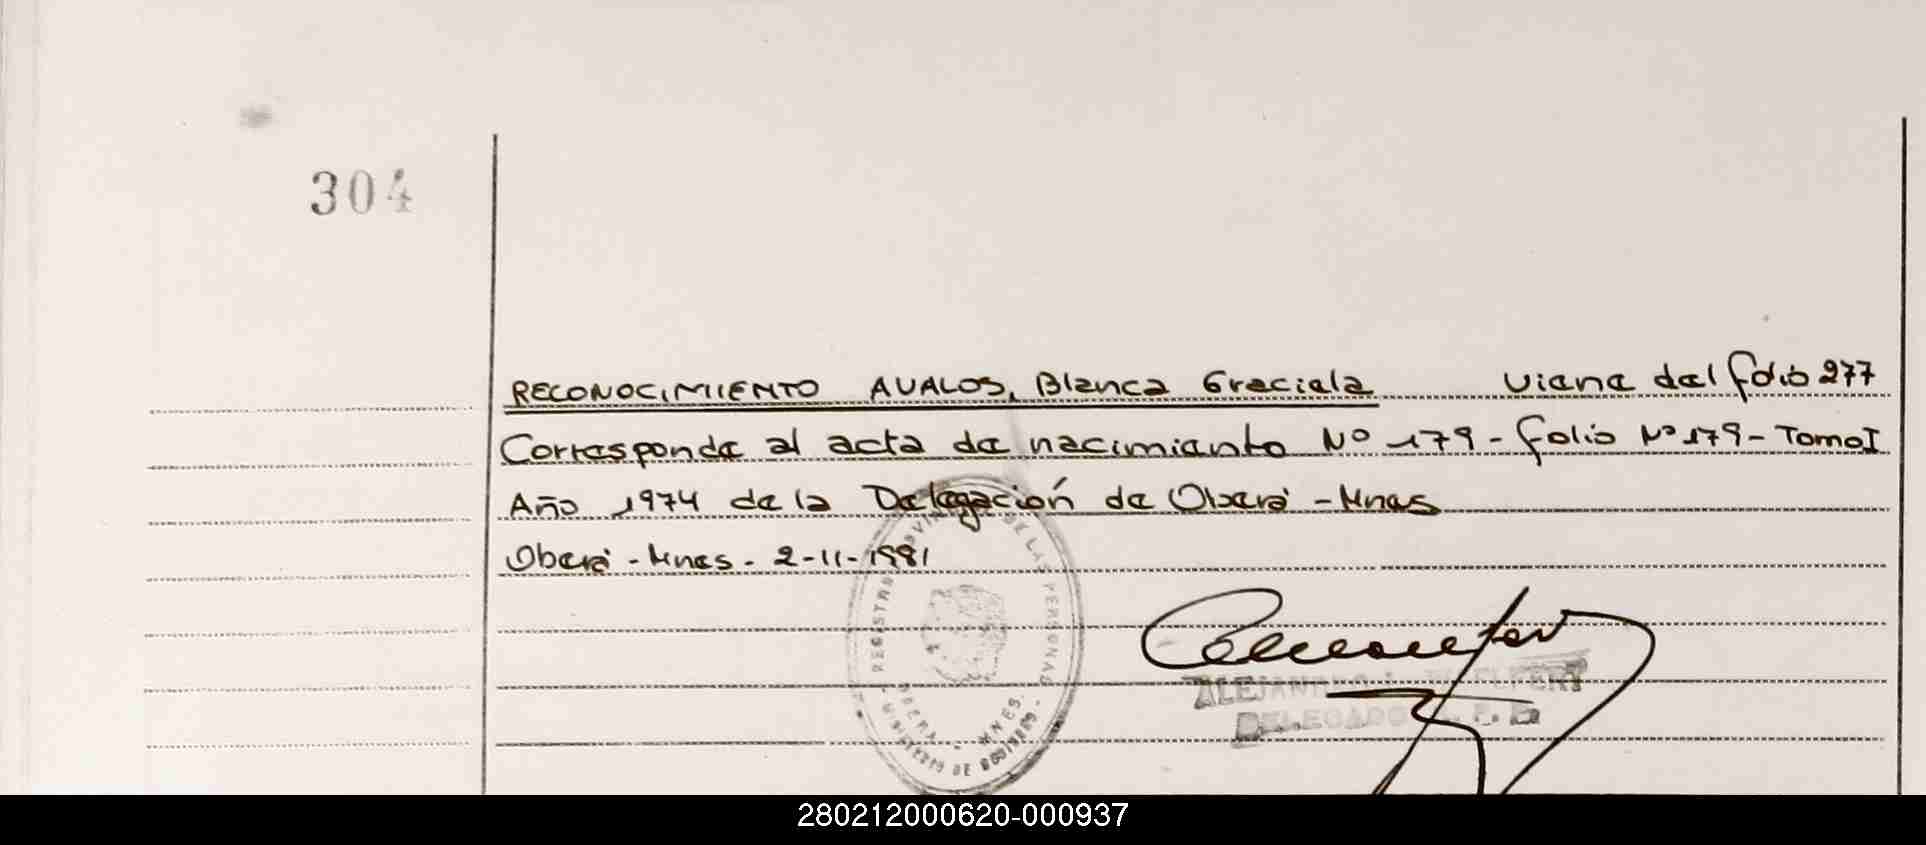 304
RECONOCIMIENTO AVALOS, Blanca Graciela Viene del folio 277
Corresponde al acta de nacimiento Nº 179 - folio Nº 179 - Tomo I
Año 1974 de la Delegación de Oberá - Mnes
Oberá - Mnes. - 2-11-1981
DE LAS PERSONAS
MINISTERIO DE GOBIERNO
OBERA
MNES.
DELEGADO
280212000620-000937